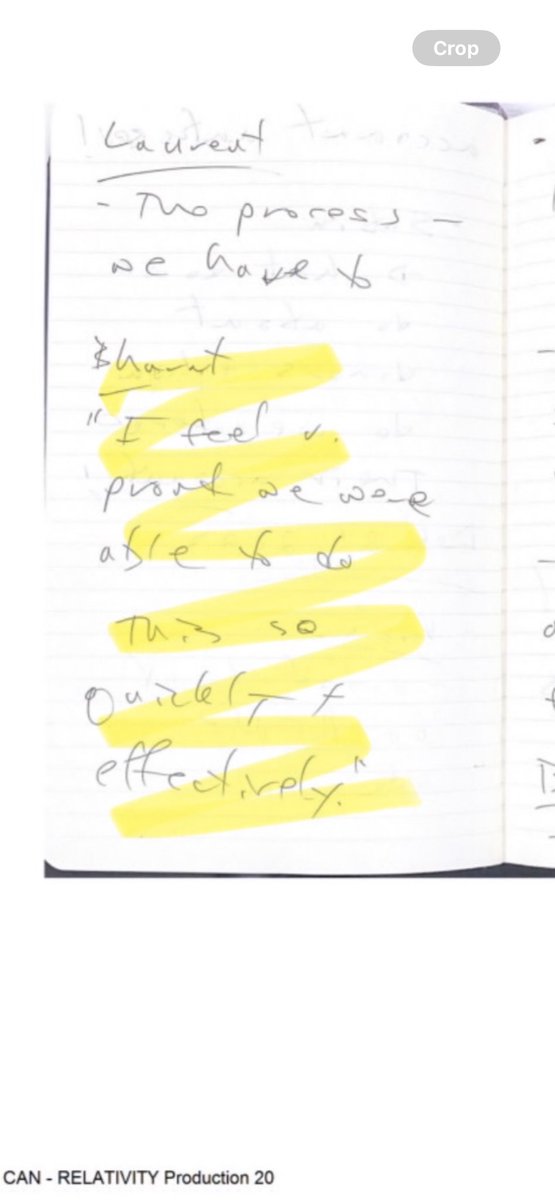 Crop
Laurent
- The process -
we have to
Bharat
"I feel v.
proud we were
able to do
this so
quickly +
effectively."
CAN - RELATIVITY Production 20